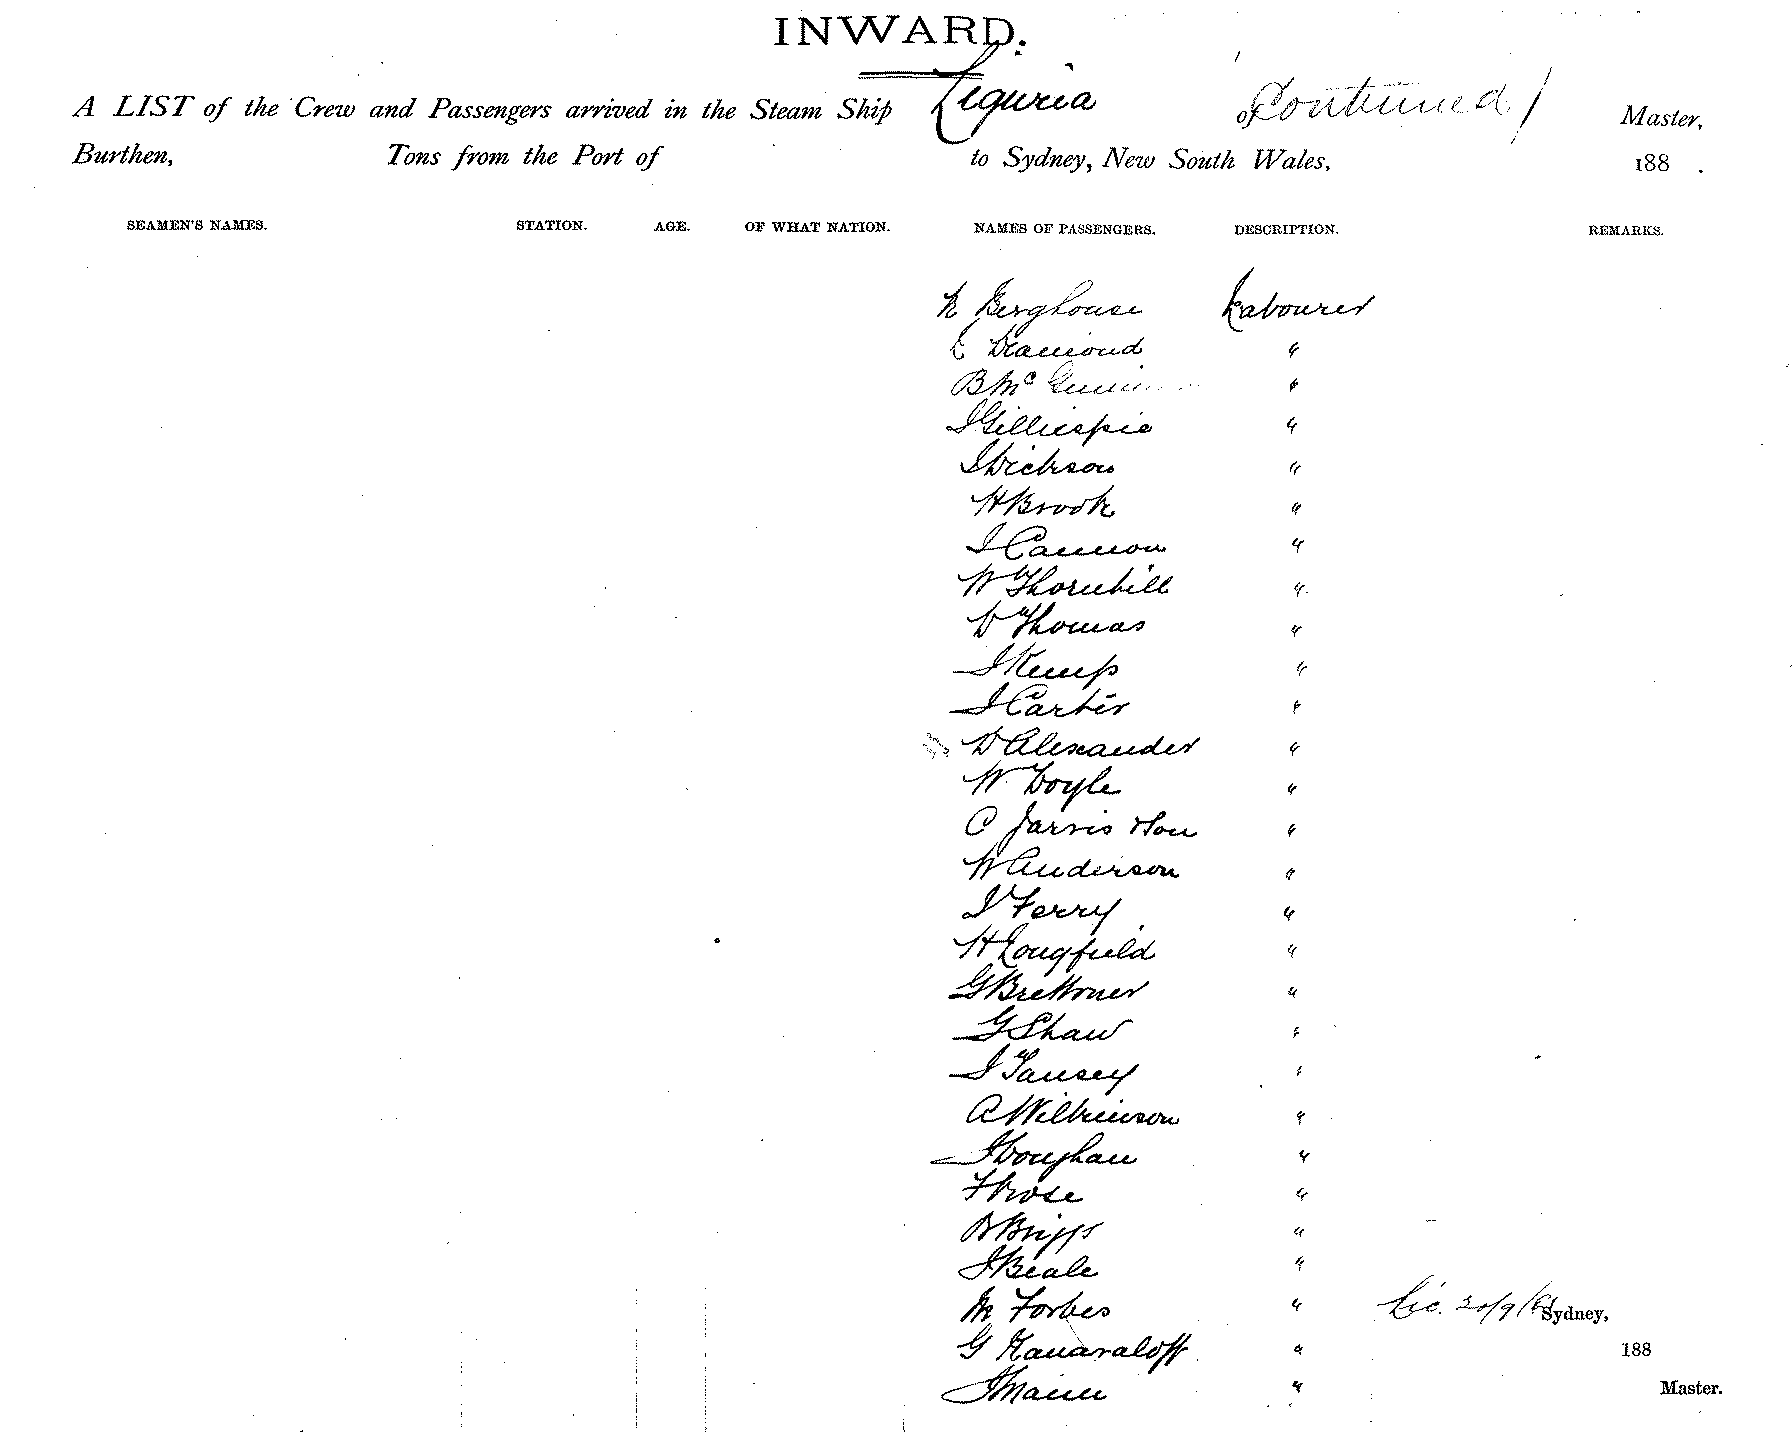 INWARD.
A LIST of the Crew and Passengers arrived in the Steam Ship Liguria of Continued / Master,
Burthen, Tons from the Port of to Sydney, New South Wales, 188 .
SEAMEN'S NAMES. STATION. AGE. OF WHAT NATION. NAMES OF PASSENGERS. DESCRIPTION. REMARKS.
Berghouse Labourer
Diamond "
B Mc "
J Gillespie "
J Dickson "
H Brook "
J Cannon "
W Thornhill "
D Thomas "
J Kemp "
J Carter "
D Alexander "
W Doyle "
C Jarvis & Son "
W Anderson "
J Ferry "
H Longfield "
G "
G Shaw "
J Tansey "
A Wilkinson "
J Doughan "
F "
Briggs "
J Beale "
M Forbes " Sydney,
G " 188
J Mann " Master.